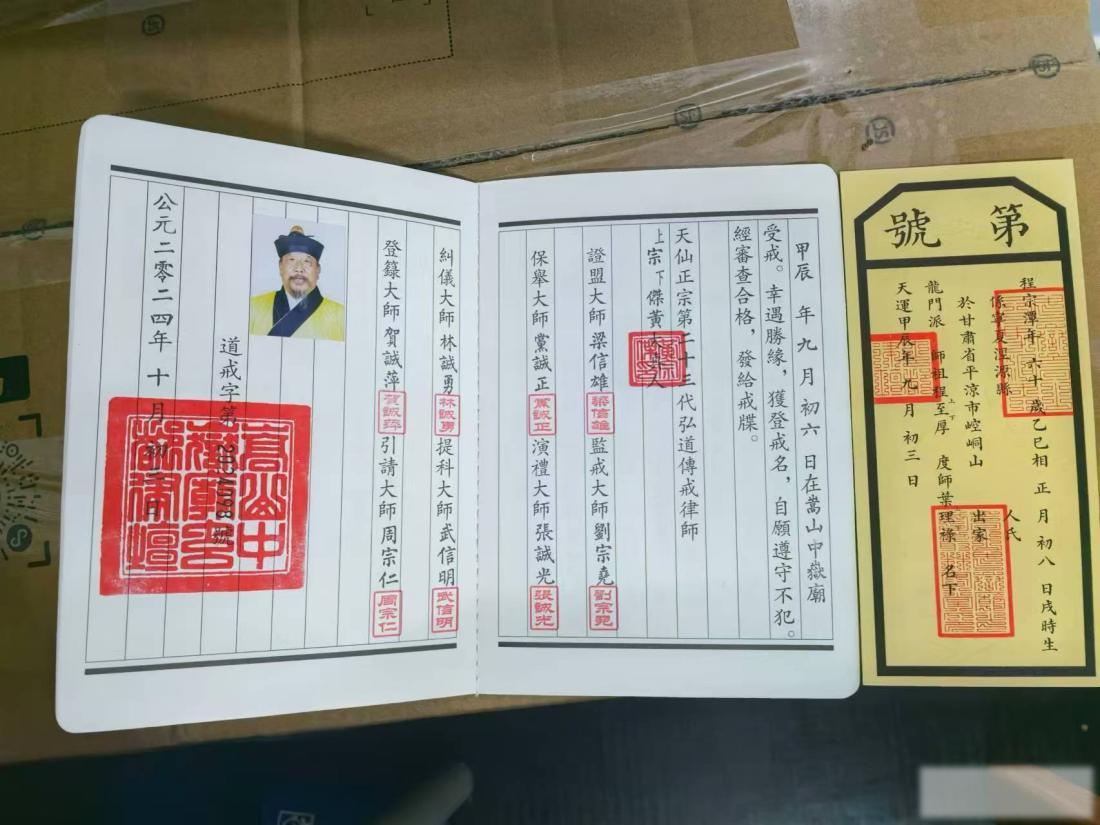 甲辰 年九月初六 日在嵩山中嶽廟
受戒。幸遇勝緣,獲登戒名,自願遵守不犯。
經審查合格,發給戒牒。
天仙正宗第二十三代弘道傳戒律師
上宗下傑黃大真人
證盟大師梁信雄 梁信雄 監戒大師劉宗堯 劉宗堯
保舉大師黨誠正 黨誠正 演禮大師張誠光 張誠光
糾儀大師林誠勇 林誠勇 提科大師武信明 武信明
登籙大師賀誠萍 賀誠萍 引請大師周宗仁 周宗仁
道戒字第 號
公元二零二四年十月初三日
第號
程宗潭年六十歲乙巳相正月初八日戌時生
係寧夏涇源縣 人氏
於甘肅省平涼市崆峒山 出家
龍門派 師祖程至厚 上下 度師葉理祿 名下
天運甲辰年九月初三日